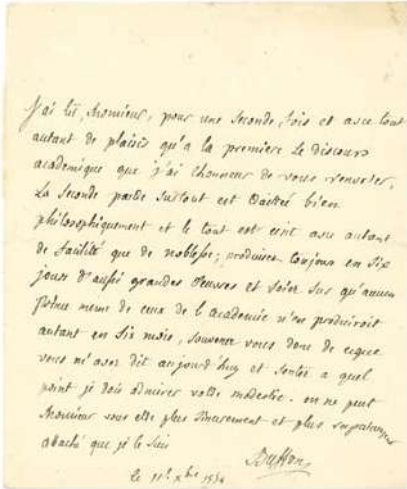 j'ai lû, Monsieur, pour une seconde fois et avec tout
autant de plaisir qu'a la premiere Le discours
academique que j'ai l'honneur de vous renvoier,
La seconde partie surtout est traitée bien
philosophiquement et le tout est ecrit avec autant
de facilité que de noblesse; produisez toujours en six
jours d'aussi grandes Oeuvres et soiez sur qu'aucun
prince meme de ceux de l'academie n'en produiroit
autant en six mois, souvenez vous donc de ce que
vous m'avez dit aujourd'huy et sentez a quel
point je dois admirer votre modestie. on ne peut
Monsieur vous etre plus sincerement et plus
attaché que je le suis
Buffon
le xbre